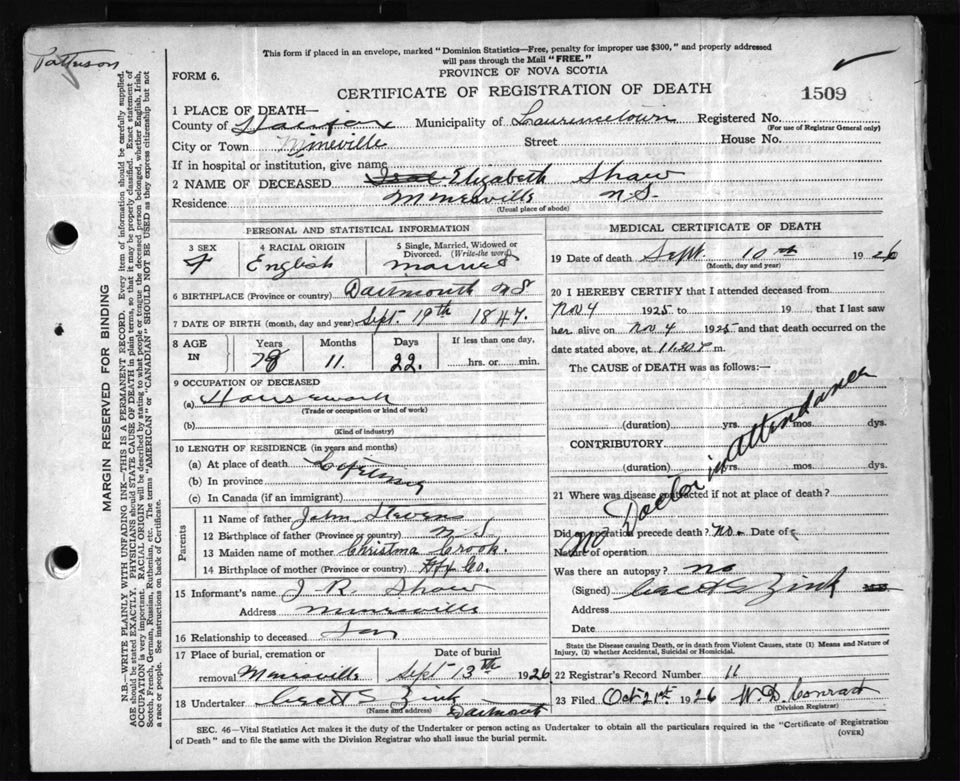 Patterson
This form if placed in an envelope, marked "Dominion Statistics—Free, penalty for improper use $300," and properly addressed
will pass through the Mail "FREE."
FORM 6.
PROVINCE OF NOVA SCOTIA
CERTIFICATE OF REGISTRATION OF DEATH
1509
1 PLACE OF DEATH—
County of Halifax Municipality of Lawrencetown Registered No.
(For use of Registrar General only)
City or Town Mineville Street House No.
If in hospital or institution, give name
2 NAME OF DECEASED Elizabeth Shaw
Residence Mineville N.S.
(Usual place of abode)
PERSONAL AND STATISTICAL INFORMATION
3 SEX 4 RACIAL ORIGIN 5 Single, Married, Widowed or
Divorced. (Write the word)
F English Married
6 BIRTHPLACE (Province or country) Dartmouth N S
7 DATE OF BIRTH (month, day and year) Sept. 19th 1847.
8 AGE IN Years Months Days If less than one day,
78 11. 22. hrs. or min.
9 OCCUPATION OF DECEASED
(a) Housework
(Trade or occupation or kind of work)
(b)
(Kind of industry)
10 LENGTH OF RESIDENCE (in years and months)
(a) At place of death Lifetime
(b) In province
(c) In Canada (if an immigrant)
Parents
11 Name of father John Stevens
12 Birthplace of father (Province or country) N S
13 Maiden name of mother Christina Crook.
14 Birthplace of mother (Province or country) Hfx Co.
15 Informant's name J R. Shaw
Address Mineville
16 Relationship to deceased Son
17 Place of burial, cremation or Date of burial
removal Mineville Sept 13th 1926
18 Undertaker Zink
(Name and address) Dartmouth
MEDICAL CERTIFICATE OF DEATH
19 Date of death Sept. 10th 1926
(Month, day and year)
20 I HEREBY CERTIFY that I attended deceased from
Nov 4 1925 to 19 that I last saw
her alive on Nov 4 1925 and that death occurred on
date stated above, at 11.30 P m.
The CAUSE of DEATH was as follows:—
No Doctor in attendance
(duration) yrs. mos. dys.
CONTRIBUTORY
(duration) yrs. mos. dys.
21 Where was disease contracted if not at place of death?
Did an operation precede death? No. Date of
Nature of operation
Was there an autopsy? no
(Signed) Zink M.D.
Address
Date
State the Disease causing Death, or in death from Violent Causes, state (1) Means and Nature of
Injury, (2) whether Accidental, Suicidal or Homicidal.
22 Registrar's Record Number 11
23 Filed Oct 21st 1926 W. D. Conrad
(Division Registrar)
SEC. 46—Vital Statistics Act makes it the duty of the Undertaker or person acting as Undertaker to obtain all the particulars required in the "Certificate of Registration
of Death" and to file the same with the Division Registrar who shall issue the burial permit.
(OVER)
MARGIN RESERVED FOR BINDING
N.B.—WRITE PLAINLY WITH UNFADING INK—THIS IS A PERMANENT RECORD. Every item of information should be carefully supplied.
AGE should be stated EXACTLY. PHYSICIANS should STATE CAUSE OF DEATH in plain terms, so that it may be properly classified. Exact statement of
OCCUPATION is very important. RACIAL ORIGIN will be described by stating to what people or tongue the deceased person belonged, whether English, Irish,
Scotch, French, German, Russian, Ruthenian, etc. The terms "AMERICAN" or "CANADIAN" SHOULD NOT BE USED as they express citizenship but not
a race or people. See instructions on back of Certificate.